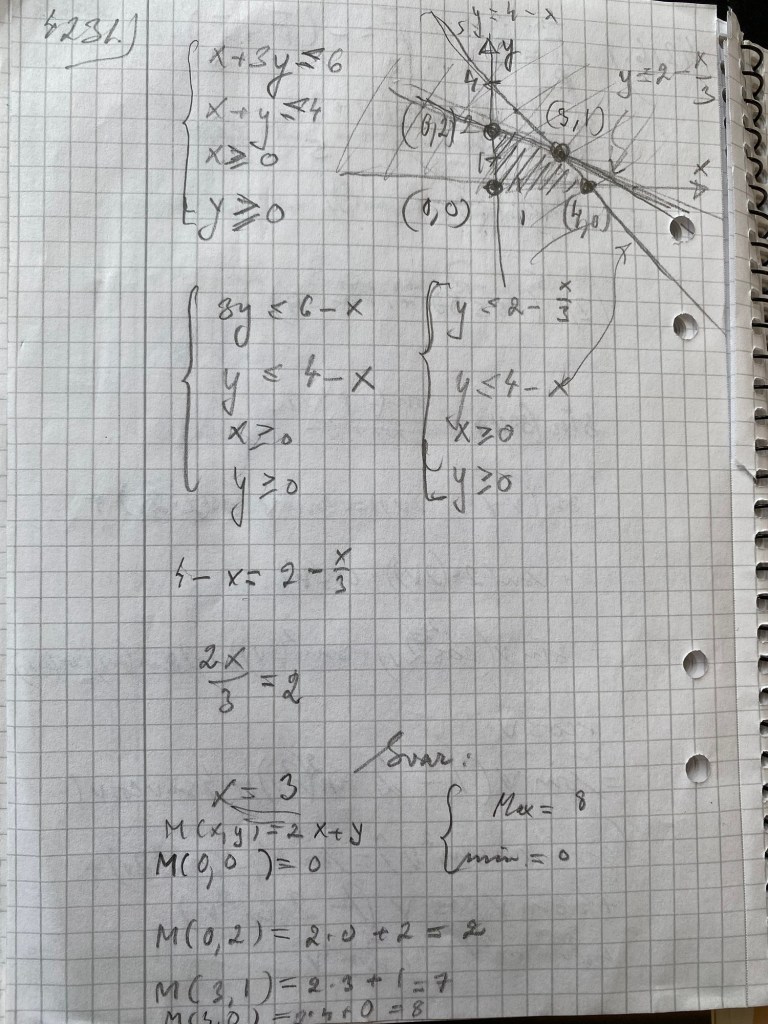 4231.)
x+3y≤6
x+y≤4
x≥0
y≥0
y=4-x
5
y
4
y=2-x/3
(0,2)
2
(3,1)
1
x
(0,0)
1
(4,0)
3y ≤ 6-x
y ≤ 4-x
x≥0
y≥0
y ≤ 2-x/3
y ≤ 4-x
x≥0
y≥0
4-x= 2-x/3
2x/3 = 2
x= 3
Svar:
Max= 8
min = 0
M(x,y)=2x+y
M(0,0)=0
M(0,2)= 2·0+2= 2
M(3,1)=2·3+1=7
M(4,0)=2·4+0=8